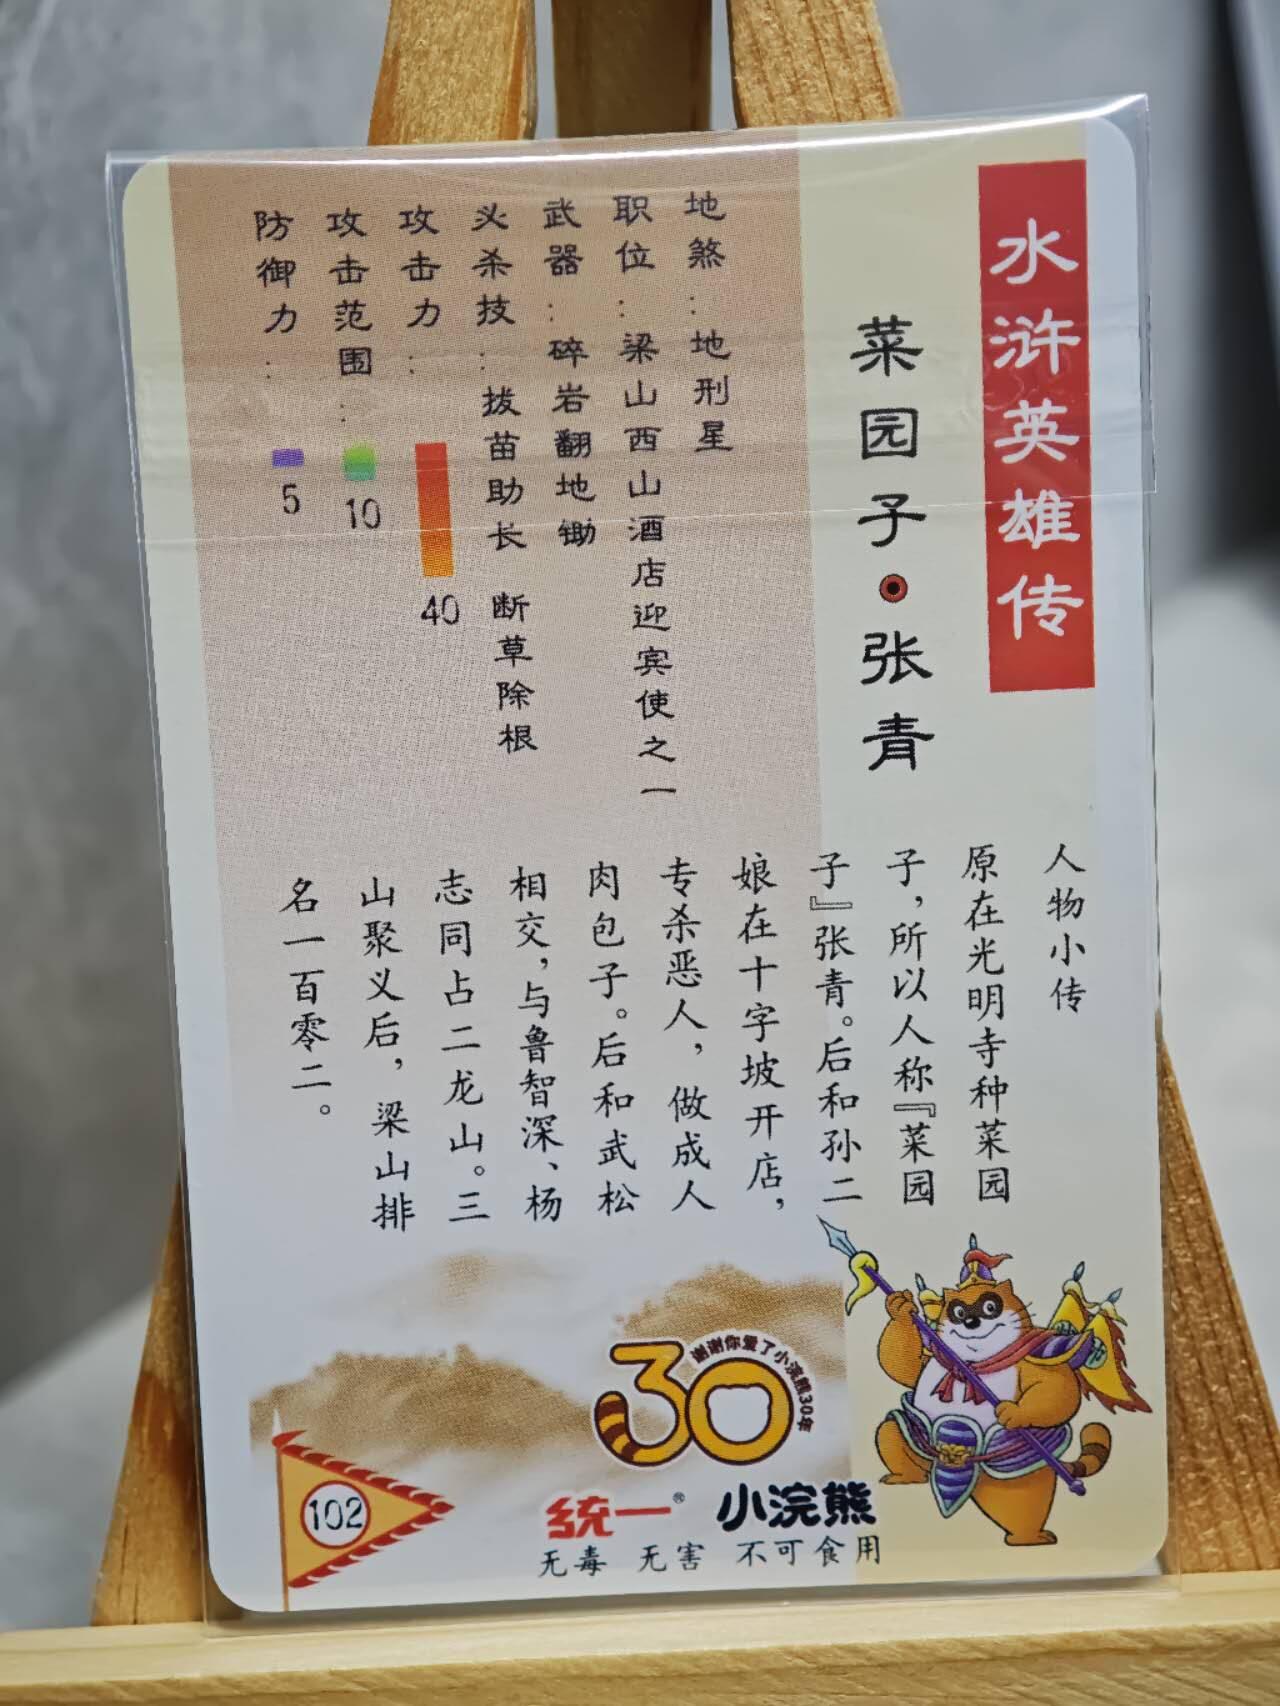 水浒英雄传
菜园子·张青
地煞:地刑星
职位:梁山西山酒店迎宾使之一
武器:碎岩翻地锄
必杀技:拔苗助长 断草除根
攻击力:40
攻击范围:10
防御力:5
人物小传
原在光明寺种菜园
子，所以人称『菜园
子』张青。后和孙二
娘在十字坡开店，
专杀恶人，做成人
肉包子。后和武松
相交，与鲁智深、杨
志同占二龙山。三
山聚义后，梁山排
名一百零二。
30
谢谢你爱了小浣熊30年
102
统一® 小浣熊
无毒 无害 不可食用